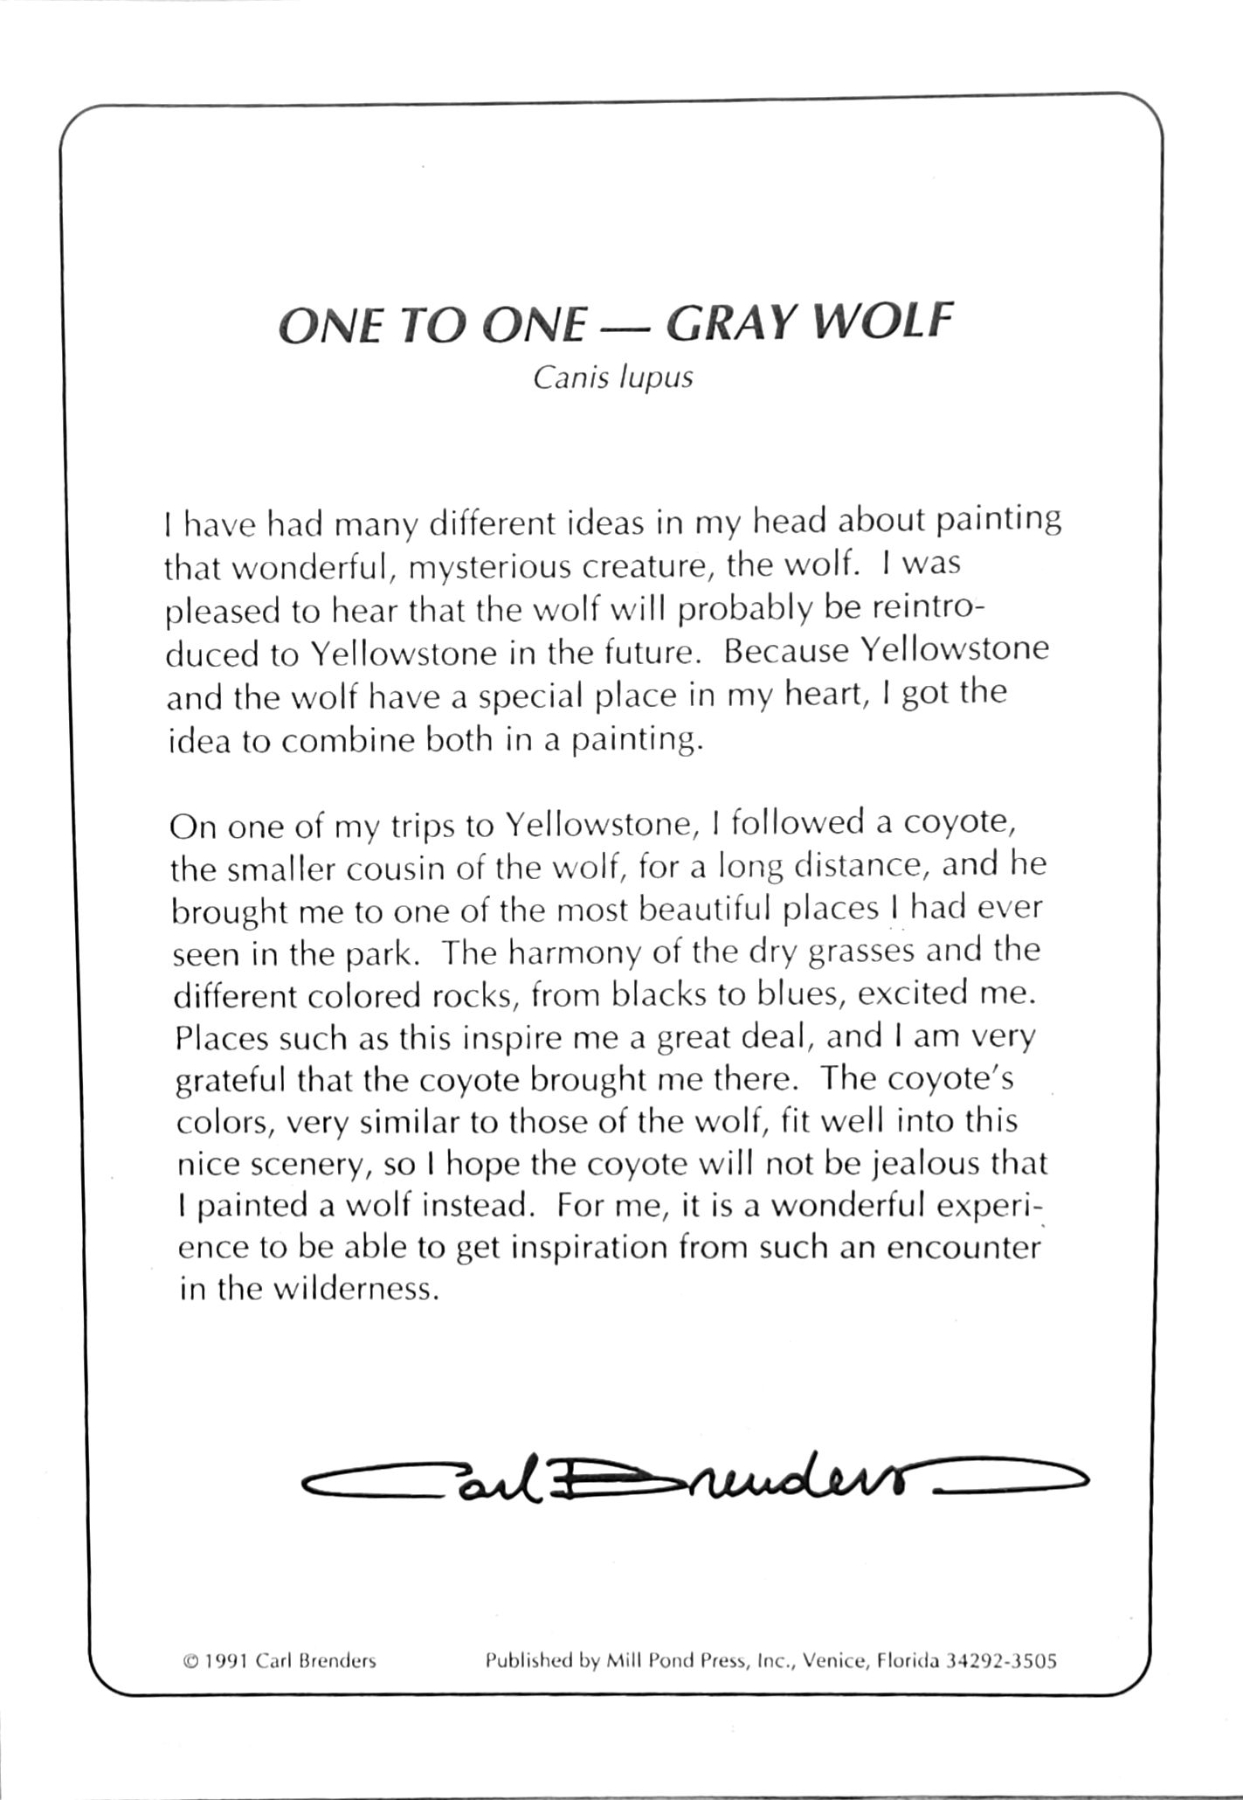 ONE TO ONE — GRAY WOLF
Canis lupus
I have had many different ideas in my head about painting
that wonderful, mysterious creature, the wolf.  I was
pleased to hear that the wolf will probably be reintro-
duced to Yellowstone in the future.  Because Yellowstone
and the wolf have a special place in my heart, I got the
idea to combine both in a painting.
On one of my trips to Yellowstone, I followed a coyote,
the smaller cousin of the wolf, for a long distance, and he
brought me to one of the most beautiful places I had ever
seen in the park.  The harmony of the dry grasses and the
different colored rocks, from blacks to blues, excited me.
Places such as this inspire me a great deal, and I am very
grateful that the coyote brought me there.  The coyote's
colors, very similar to those of the wolf, fit well into this
nice scenery, so I hope the coyote will not be jealous that
I painted a wolf instead.  For me, it is a wonderful experi-
ence to be able to get inspiration from such an encounter
in the wilderness.
Carl Brenders
© 1991 Carl Brenders Published by Mill Pond Press, Inc., Venice, Florida 34292-3505